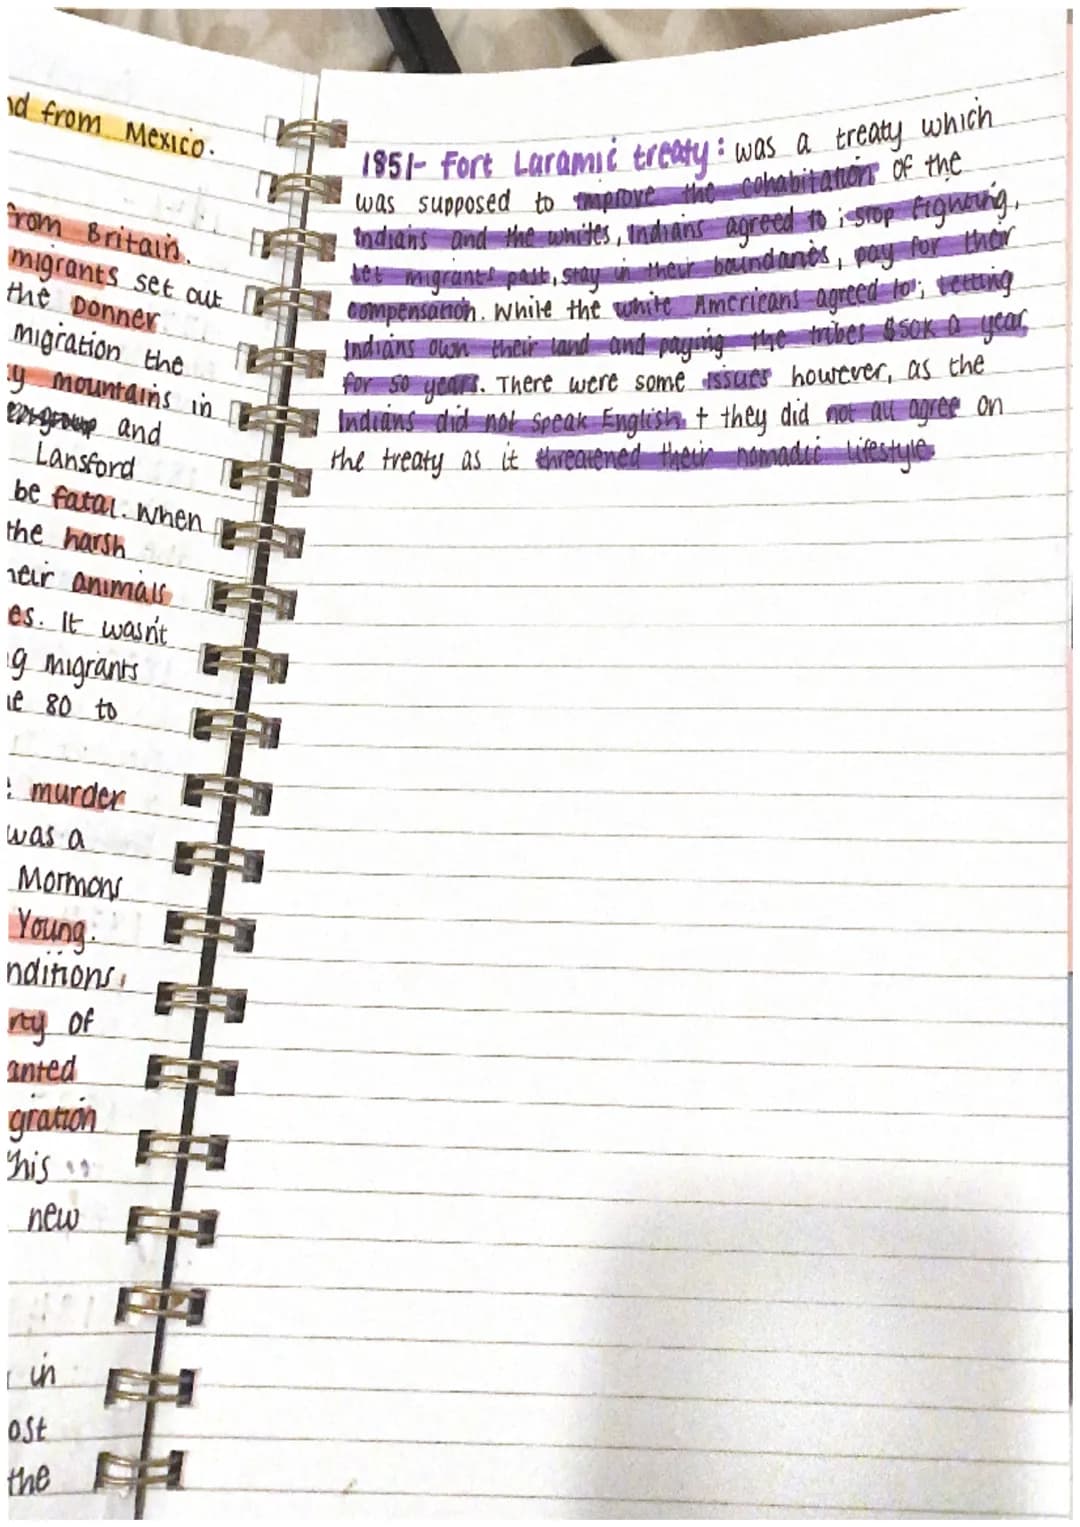 nd from Mexico.
from Britain.
migrants set out
the Donner
migration the
y mountains in
and
Lansford
be fatal. When
the harsh
heir animals
es. It wasn't
g migrants
80 to
murder
was a
Mormons
Young.
nditions,
rty of
anted
gration
this
new
in
ost
the
1851- Fort Laramie treaty: was a treaty which
was supposed to improve the cohabitation of the
Indians and the whites, Indians agreed to; stop fighting,
let migrants past, stay in their boundaries, pay for their
compensation. While the white Americans agreed to; letting
Indians own their land and paying the tribes $50K a year
for 50 years. There were some issues however, as the
Indians did not speak English + they did not all agree on
the treaty as it threatened their nomadic lifestyle.